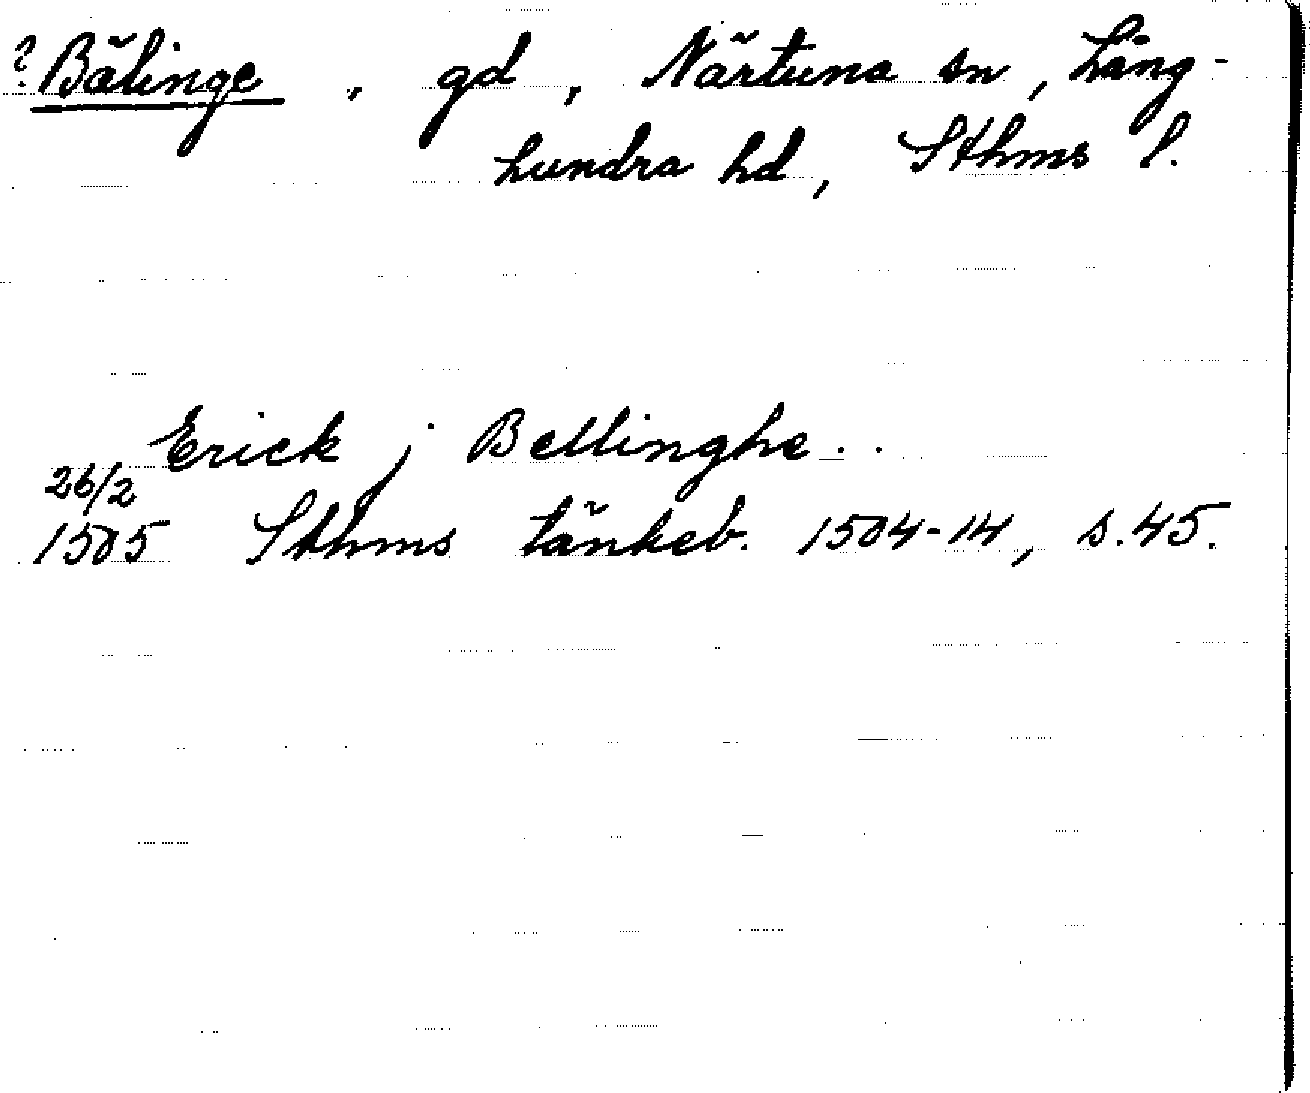 ? Bälinge, gd, Närtuna sn, Lång-
hundra hd, Sthms l.
Erick j Bellinghe..
26/2
1505 Sthms tänkeb. 1504-14, s. 45.